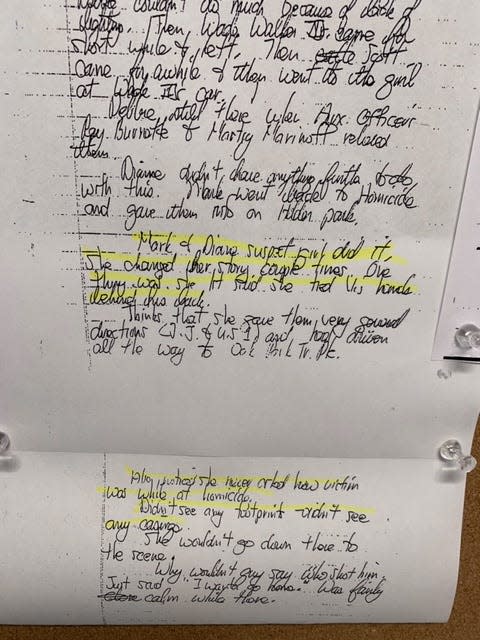 couldn't do much because of lack of
Then, Wade Walker III came for
short while & left. Then Scott
came for awhile & then went to the girl
at Wade III's car.
Debbie still there when Aux. Officer
Ray Burnotte & Marty Marinoff related
them.
Dianne didn't have anything further to do
with this. Mark went back to Homicide
and gave them info on Hilden park.
Mark & Diane suspect girl did it,
She changed her story couple times. One
thing was she 1st said she tied V's hands
behind his back.
Thinks that she gave them very good
directions (J.J. & U.S 1) and had driven
all the way to Oak Park Tr. Pk.
Also noticed she never asked how victim
was while at homicide.
Didn't see any footprints - didn't see
any casings
She wouldn't go down there to
the scene.
Why wouldn't guy say who shot him.
Just said I wanta go home. Was fairly
calm while there.